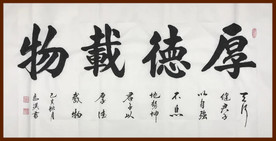 厚德載物
天行
健君子
以自強
不息
地勢坤
君子以
厚德
載物
己亥秋月
書